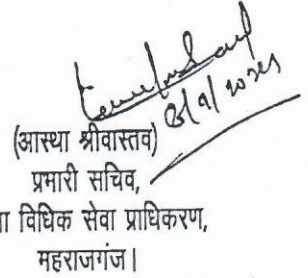 (आस्था श्रीवास्तव)
प्रभारी सचिव,
विधिक सेवा प्राधिकरण,
महराजगंज।